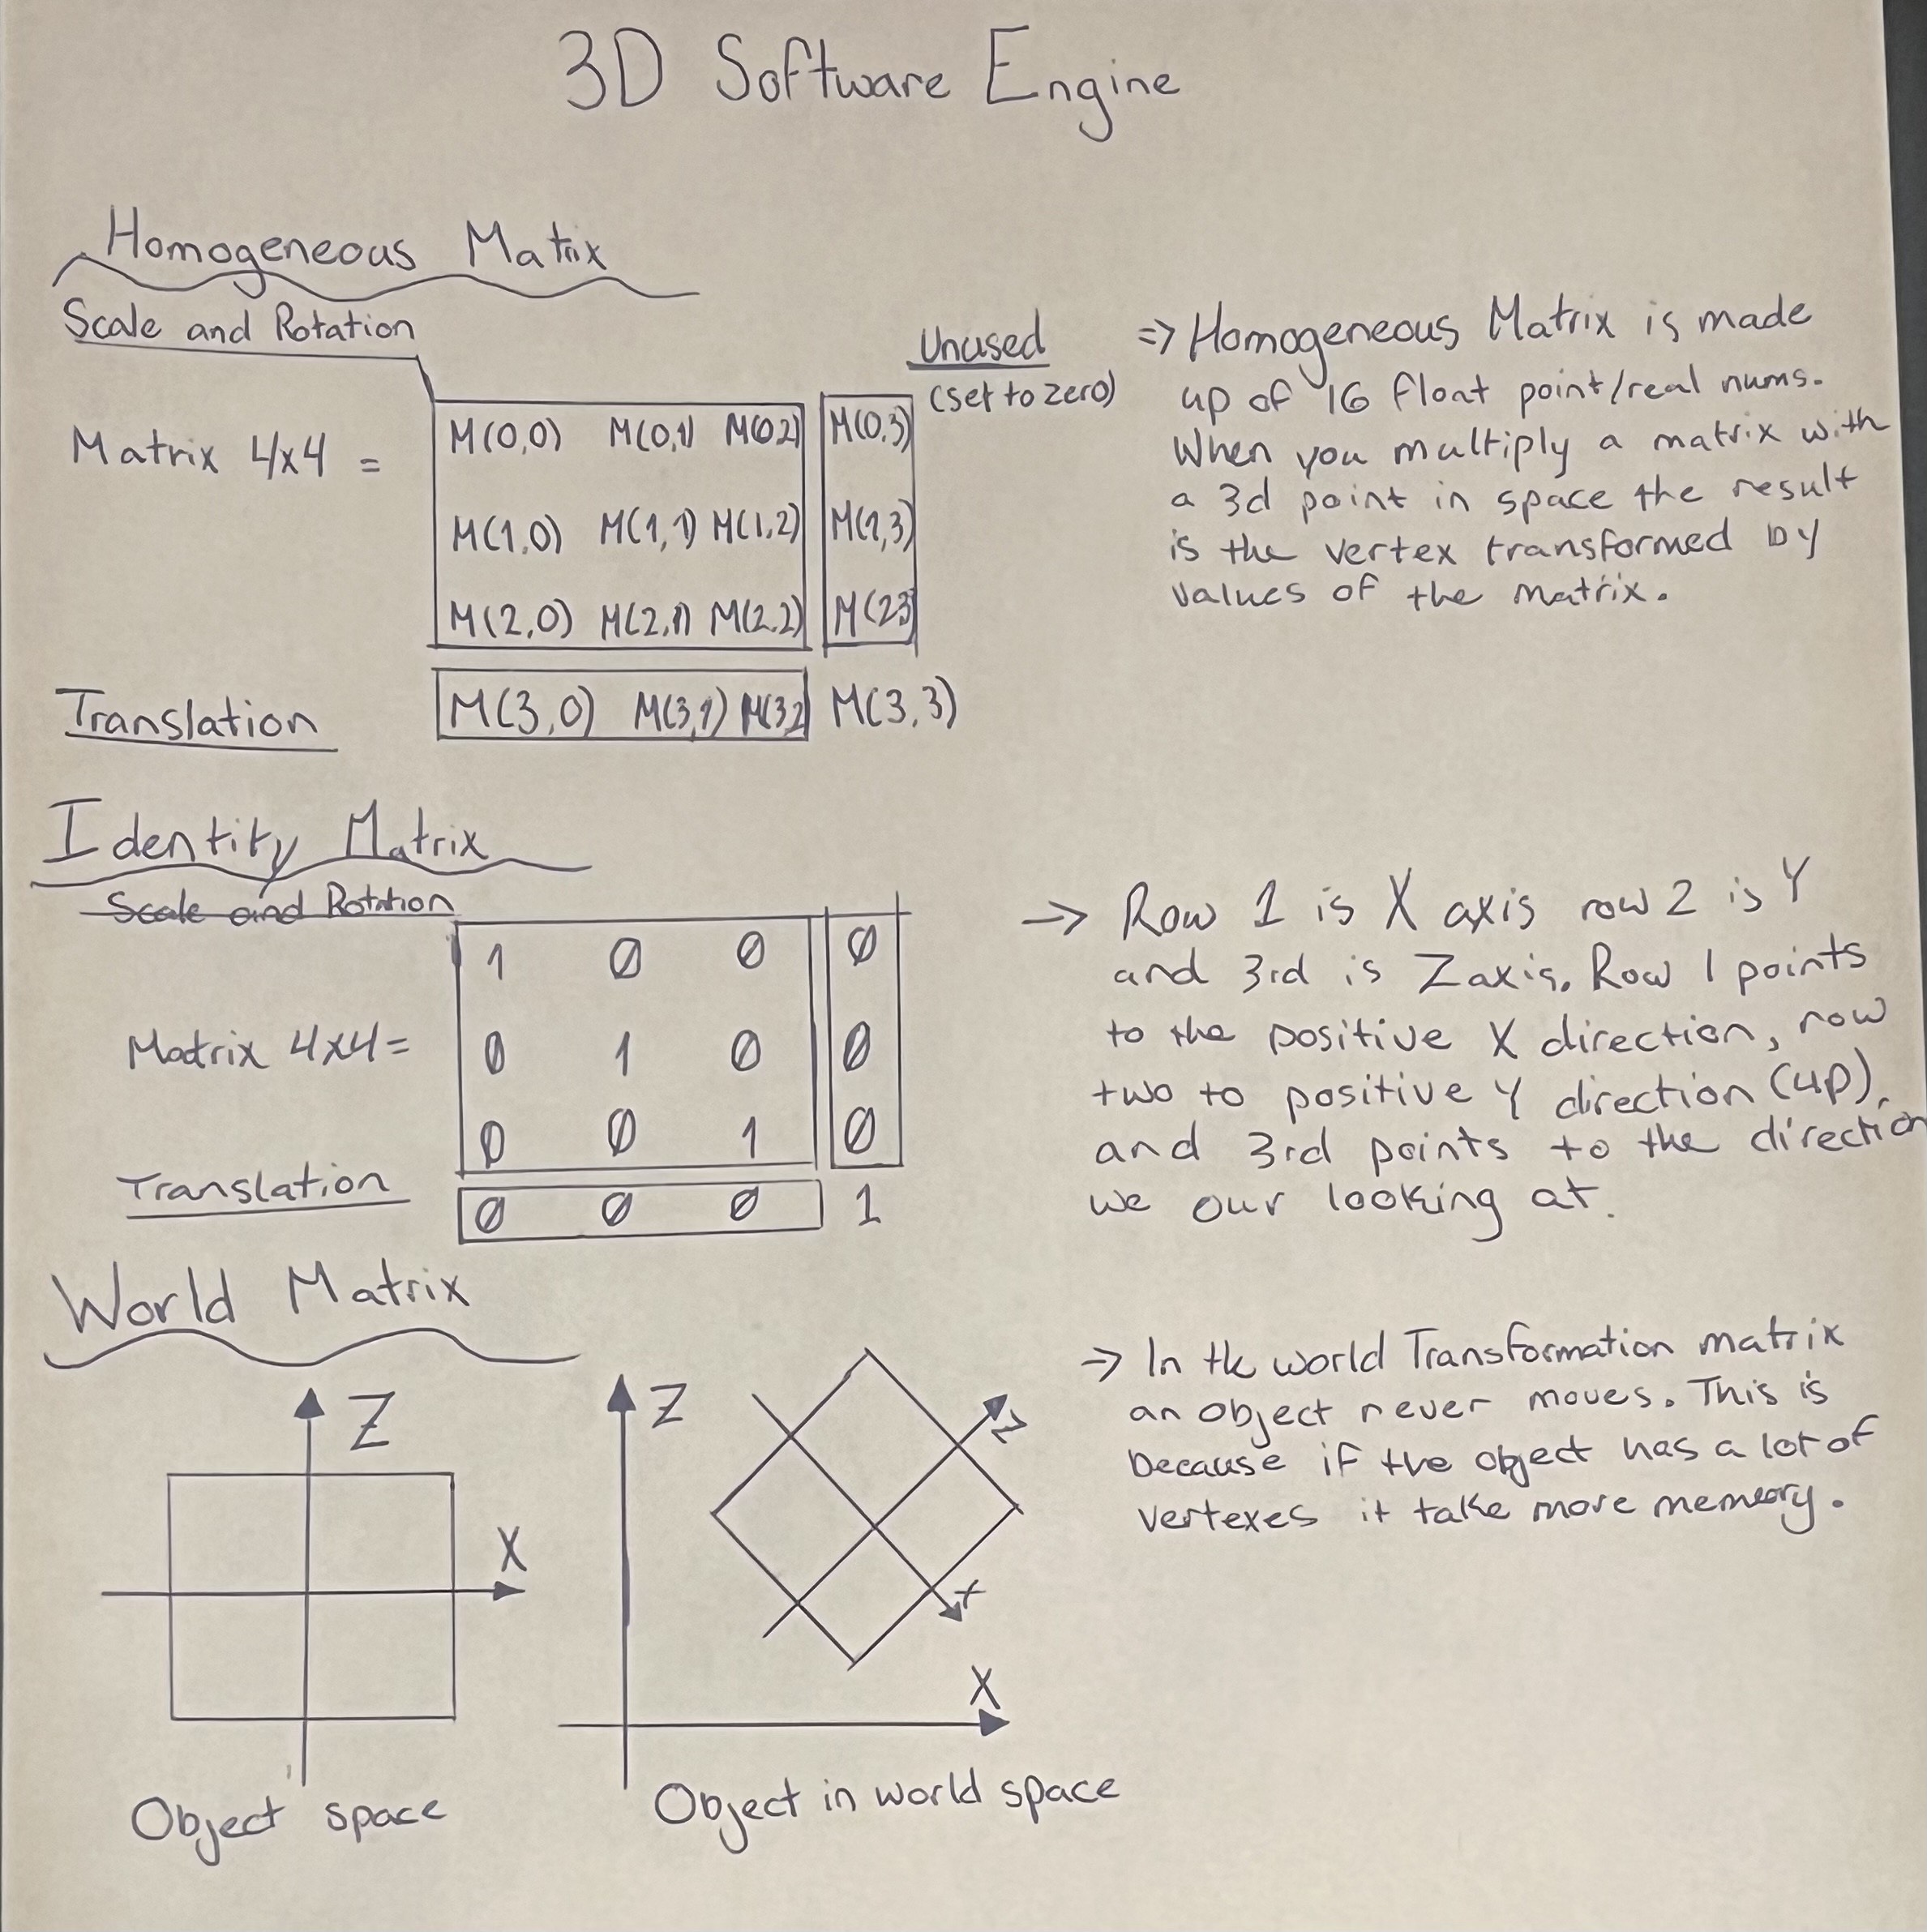 3D Software Engine
Homogeneous Matrix
Scale and Rotation
Unused
(set to zero)
Matrix 4x4 =
M(0,0) M(0,1) M(0,2) M(0,3)
M(1,0) M(1,1) M(1,2) M(1,3)
M(2,0) M(2,1) M(2,2) M(2,3)
Translation
M(3,0) M(3,1) M(3,2) M(3,3)
=> Homogeneous Matrix is made
up of 16 float point/real nums.
When you multiply a matrix with
a 3d point in space the result
is the vertex transformed by
values of the matrix.
Identity Matrix
Scale and Rotation
Matrix 4x4=
1 0 0 0
0 1 0 0
0 0 1 0
Translation
0 0 0 1
-> Row 1 is X axis row 2 is Y
and 3rd is Z axis. Row 1 points
to the positive X direction, row
two to positive Y direction (up),
and 3rd points to the direction
we our looking at.
World Matrix
Z
X
Object space
Z
Z
X
X
Object in world space
-> In the world Transformation matrix
an object never moves. This is
because if the object has a lot of
vertexes it take more memeory.